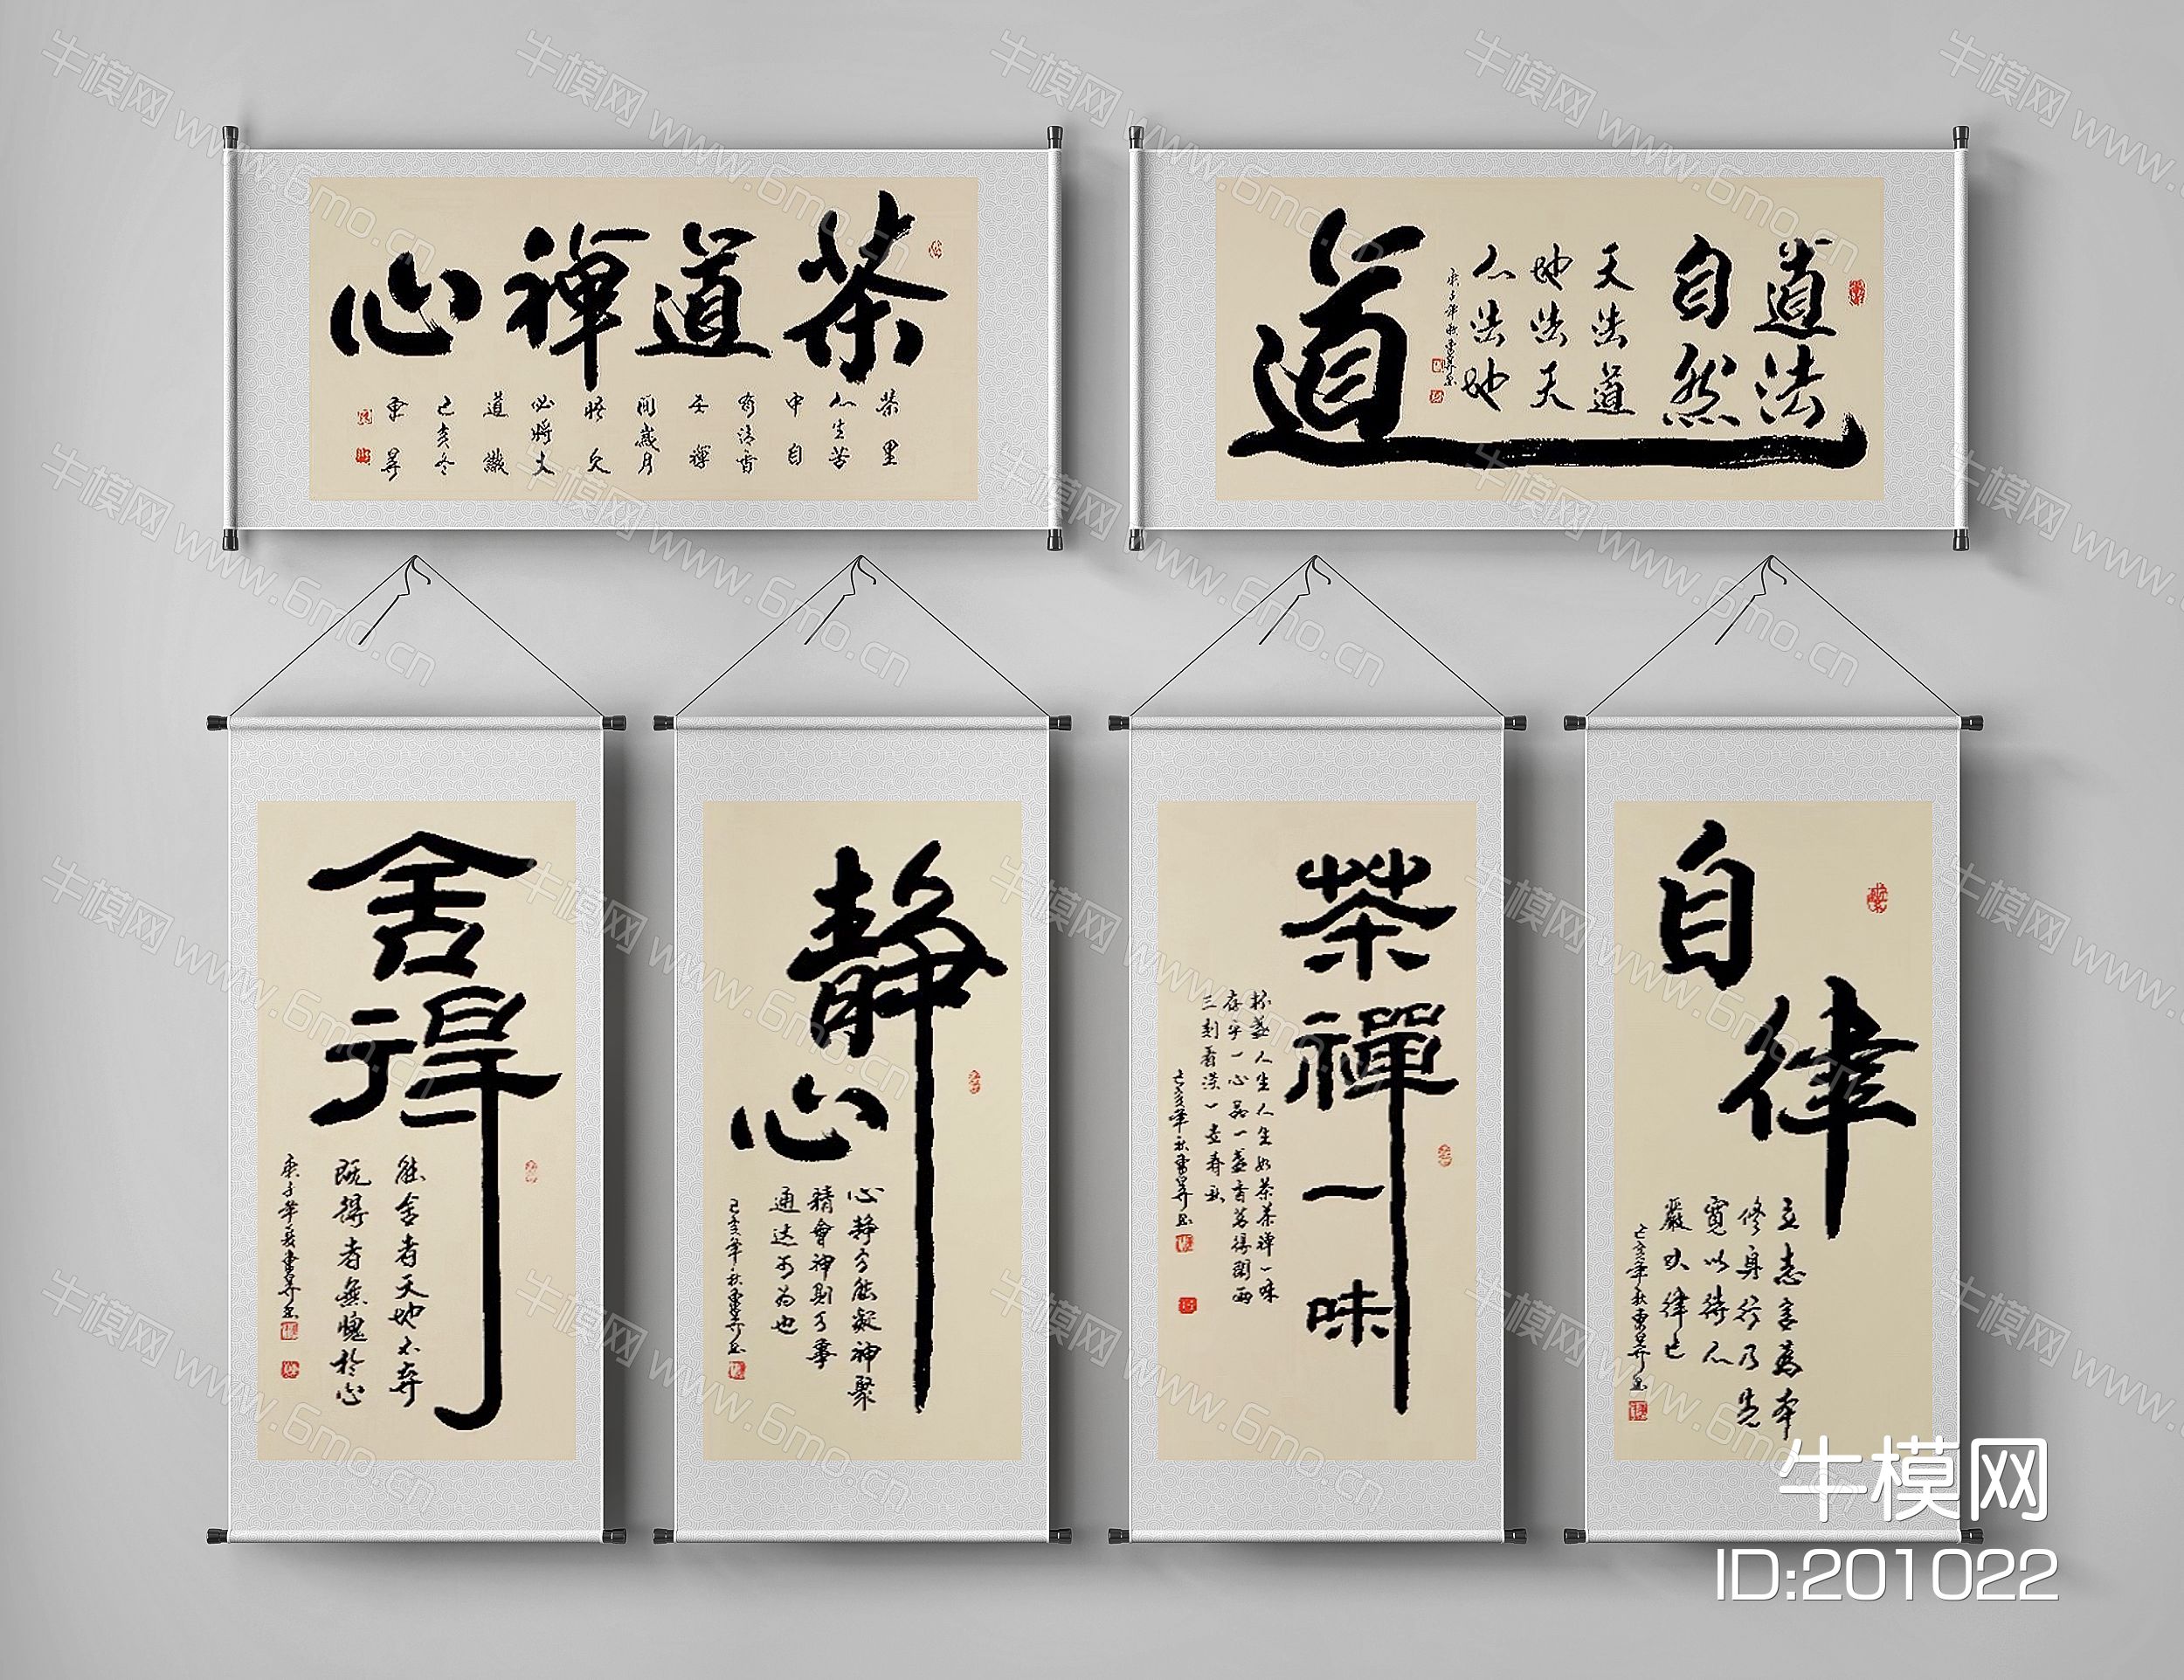 茶道禪心
茶里
人生苦
中自
有清香
坐禪
間歲月
悟久
必將大
道歲
己亥冬
道法
自然
天法道
地法天
人法地
道
庚子年秋
舍得
能舍者天地不弃
既得者無愧於心
庚子年夏
靜心
心靜了能凝神聚
精會神則了事
通达可为也
己亥年秋
茶禪一味
杯盞人生人生如茶茶禪一味
存乎一心品一盞香茗得閑雨
三刻看淡一壶春秋
己亥年秋
自律
立志言為本
修身行乃先
寬以待人
嚴以律己
己亥年秋
牛模网
ID:201022
牛模网 www.6mo.cn